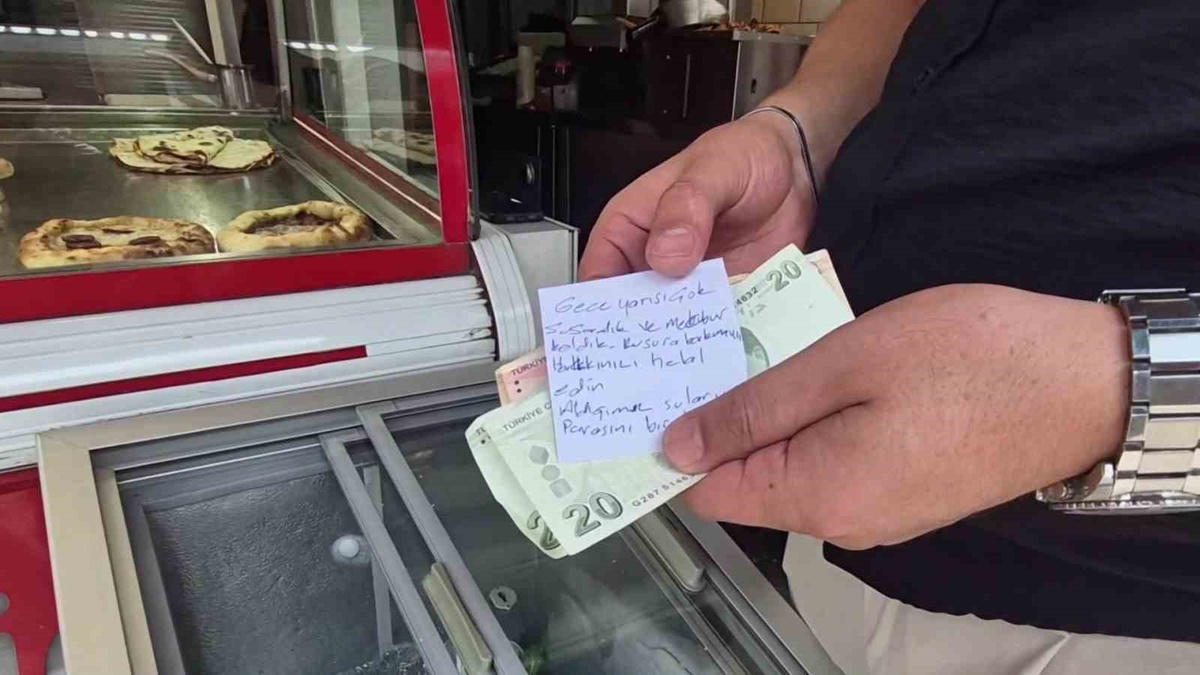 Gece yarısı Çok
Susadık ve Mecbur
kaldık. Kusura bakmayın
Hakkınızı helal
edin
Aldığımız suların
Parasını bır
TÜRKİYE
TÜRKİYE C
20
20
20